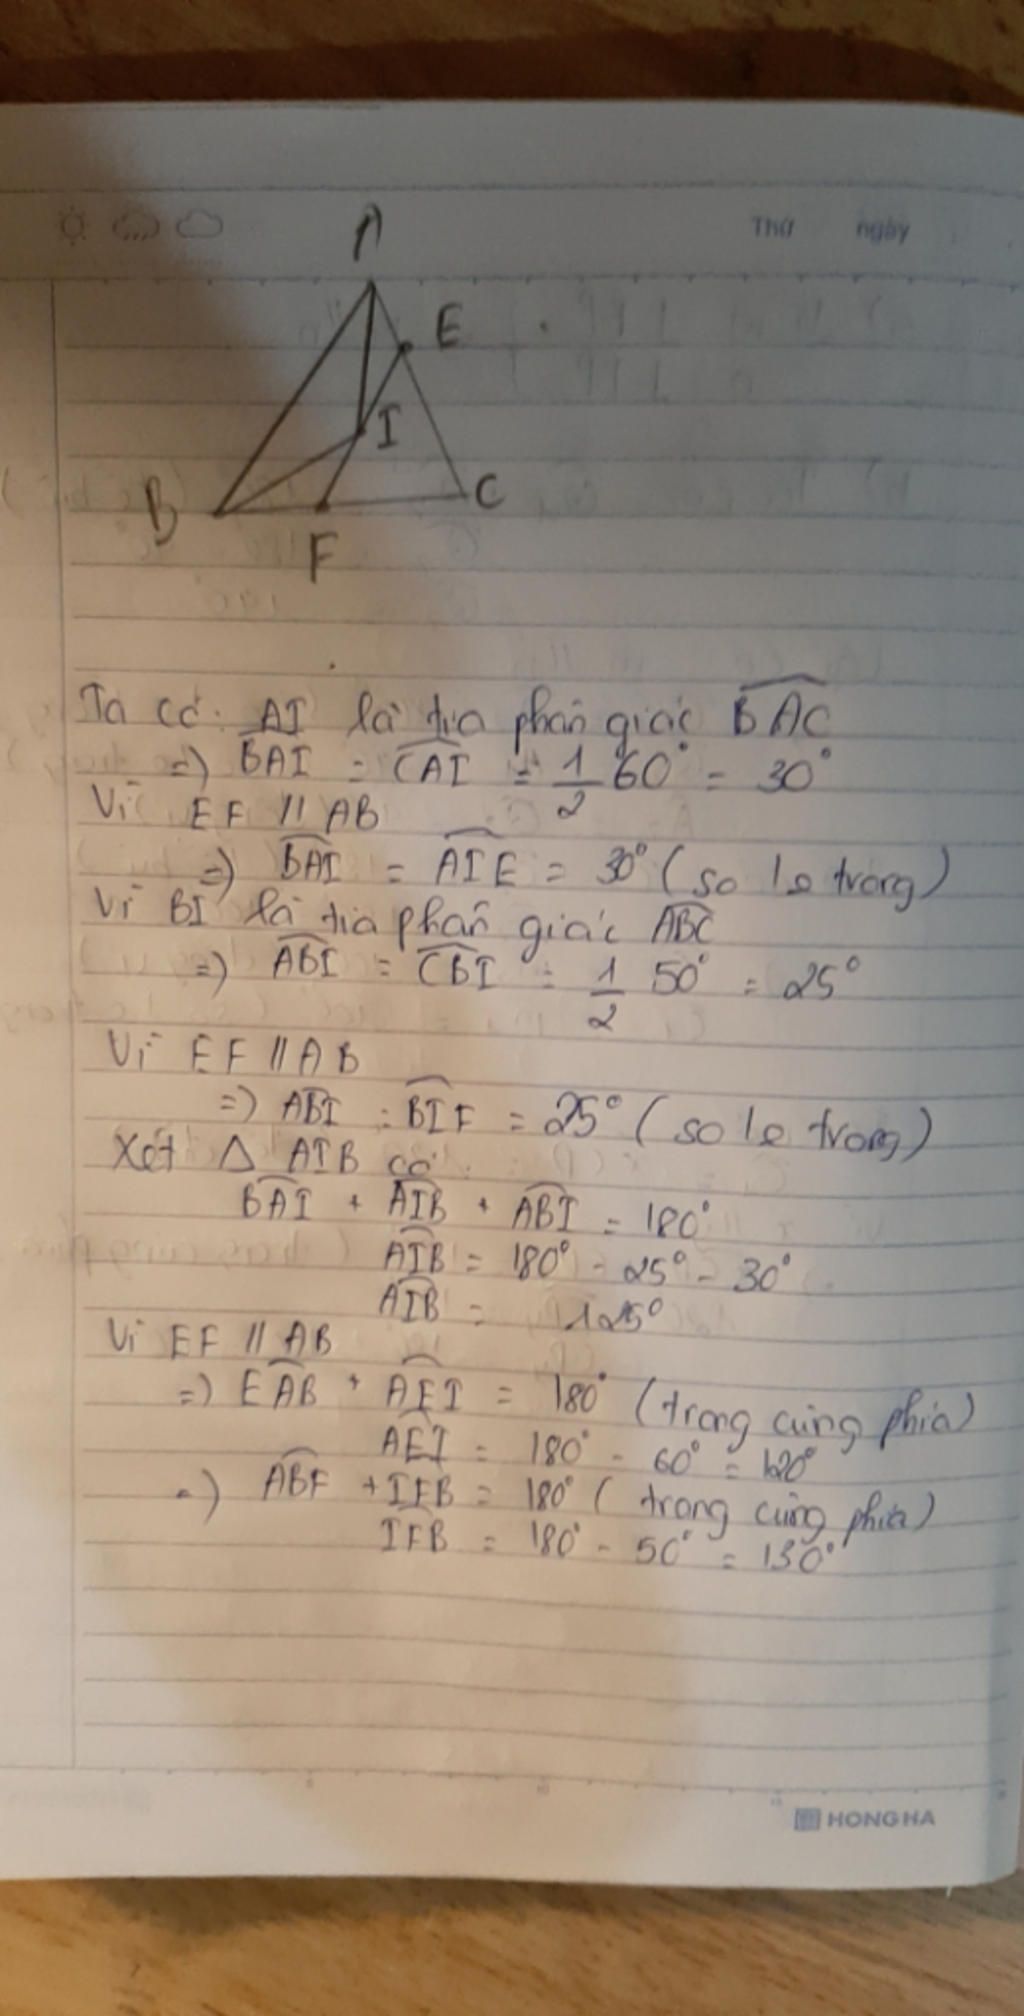 Thứ ngày
A
E
I
B
C
F
Ta có: AI là tia phân giác BAC
=) BAI = CAI = 1/2 60° = 30°
Vì EF // AB
=) BAI = AIE = 30° (so le trong)
Vì BI là tia phân giác ABC
=) ABI = CBI = 1/2 50° = 25°
Vì EF // AB
=) ABI = BIF = 25° (so le trong)
Xét Δ AIB có:
BAI + AIB + ABI = 180°
AIB = 180° - 25° - 30°
AIB = 125°
Vì EF // AB
=) EAB + AEI = 180° (trong cùng phía)
AEI = 180° - 60° = 120°
=) ABF + IFB = 180° (trong cùng phía)
IFB = 180° - 50° = 130°
HONG HA